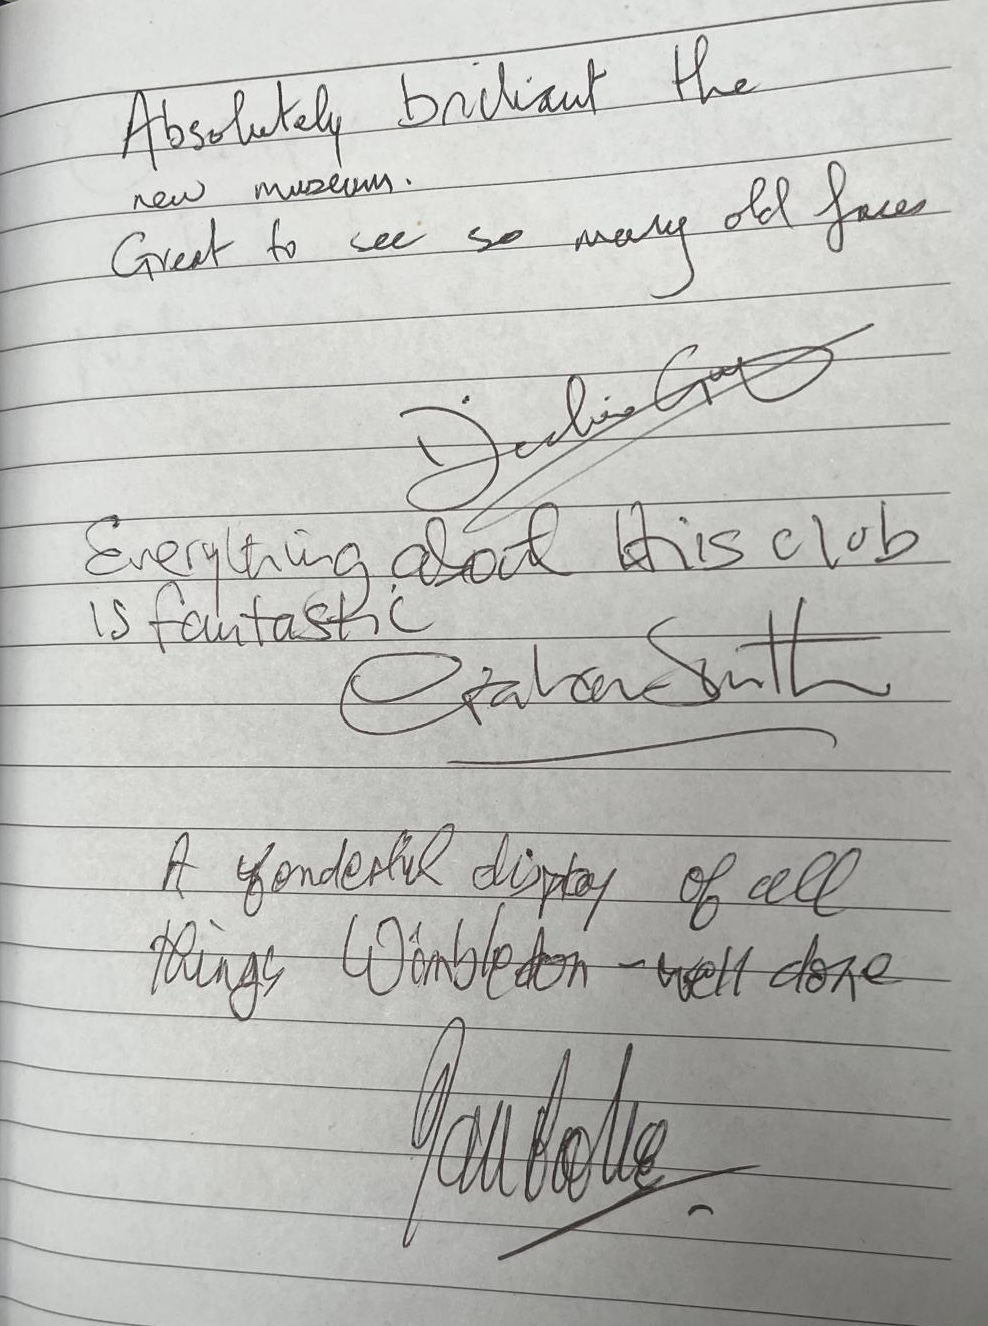 Absolutely brilliant the
new museum.
Great to see so many old faces
Everything about this club
is fantastic
Graham Smith
A wonderful display of all
things Wimbledon - well done